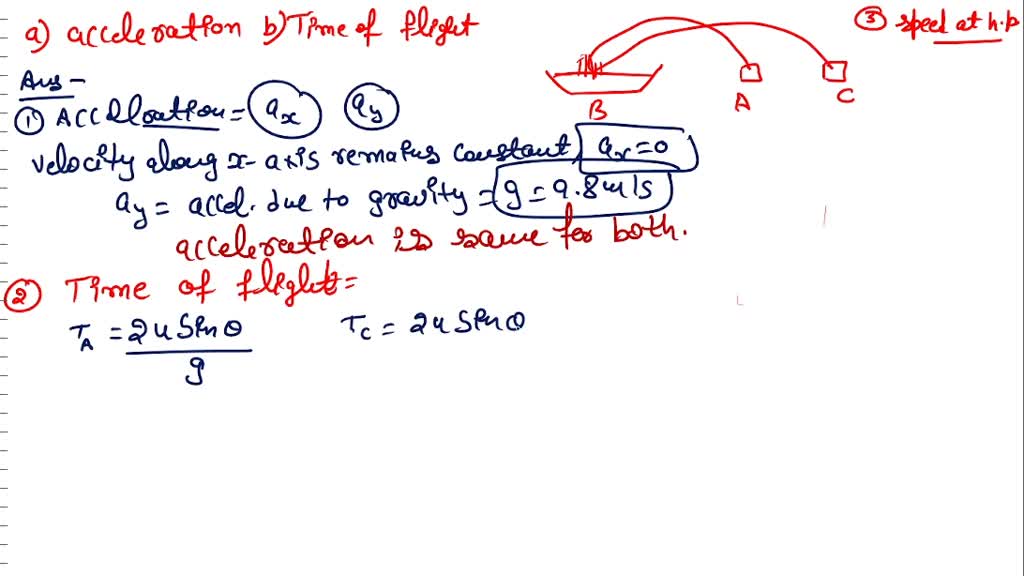 a) acceleration b) Time of flight
③ speed at h.p
B
A
C
Ans -
① Acceleration = ax ay
velocity along x-axis remains constant, ax = 0
ay = accel. due to gravity = g = 9.8 m/s
acceleration is same for both.
② Time of flight =
TA = 2u Sin θ / g
TC = 2u Sin θ